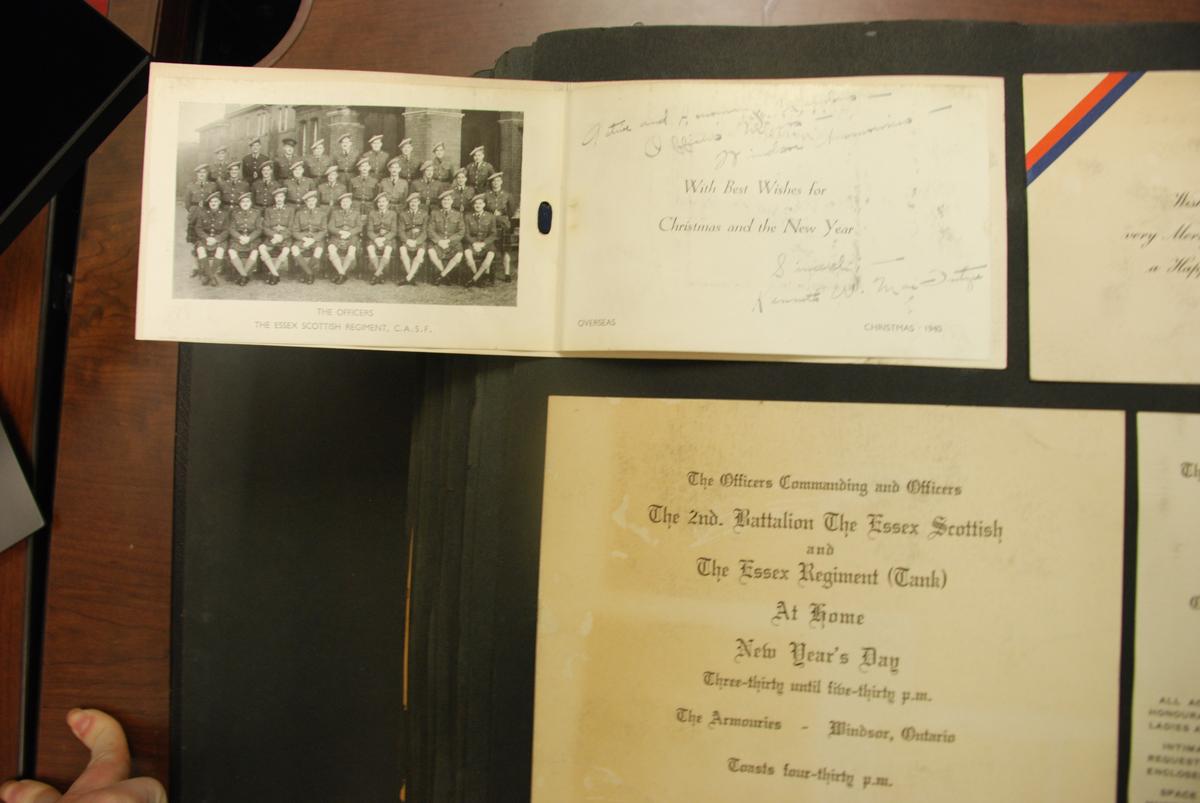 THE OFFICERS
THE ESSEX SCOTTISH REGIMENT, C.A.S.F.
Active and
Officers
Windsor Armouries —
With Best Wishes for
Christmas and the New Year
Sincerely,
Kenneth W. MacIntyre
OVERSEAS
CHRISTMAS · 1940
very
a
The Officers Commanding and Officers
The 2nd. Battalion The Essex Scottish
and
The Essex Regiment (Tank)
At Home
New Year's Day
Three-thirty until five-thirty p.m.
The Armouries - Windsor, Ontario
Toasts four-thirty p.m.
ALL
LADIES
SPACE